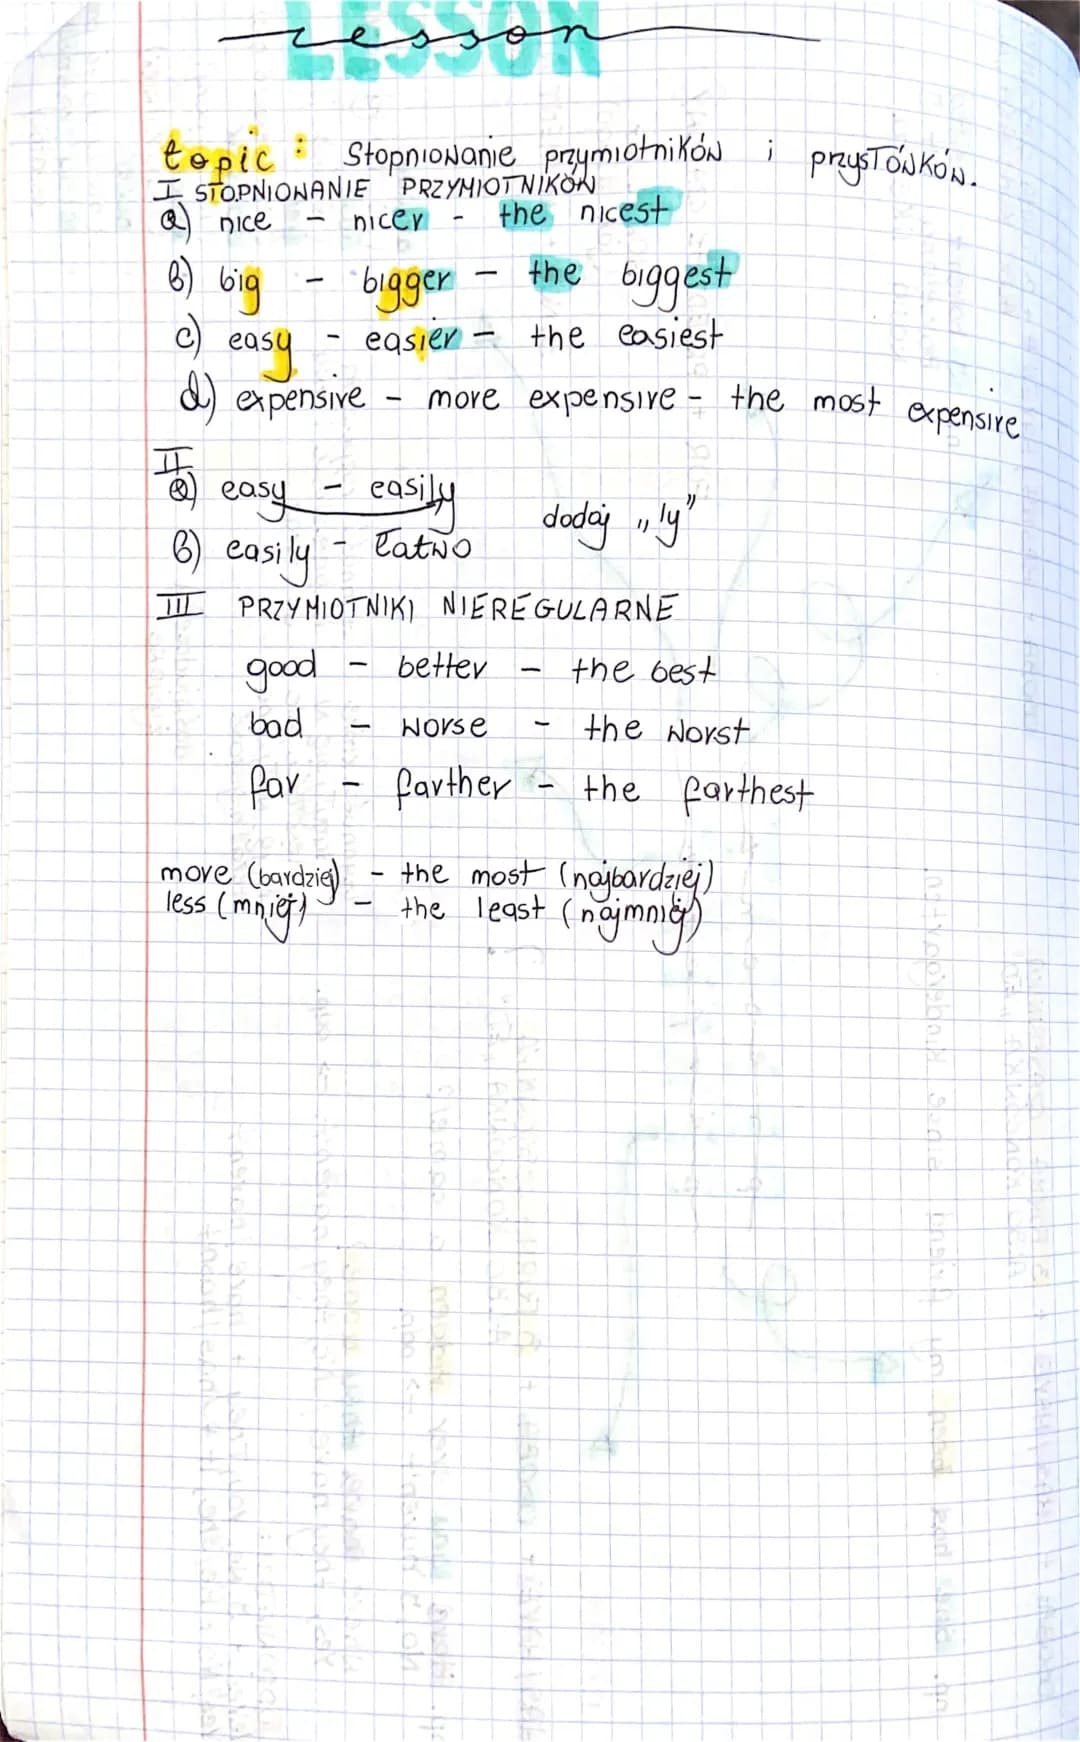 LESSON
lesson
topic: Stopniowanie przymiotników i przysłówków.
I STOPNIOWANIE PRZYMIOTNIKÓW
a) nice - nicer - the nicest
b) big - bigger - the biggest
c) easy - easier - the easiest
d) expensive - more expensive - the most expensive
II
a) easy - easily
dodaj „ly"
b) easily - łatwo
III PRZYMIOTNIKI NIEREGULARNE
good - better - the best
bad - worse - the worst
far - farther - the farthest
more (bardziej) - the most (najbardziej)
less (mniej) - the least (najmniej)